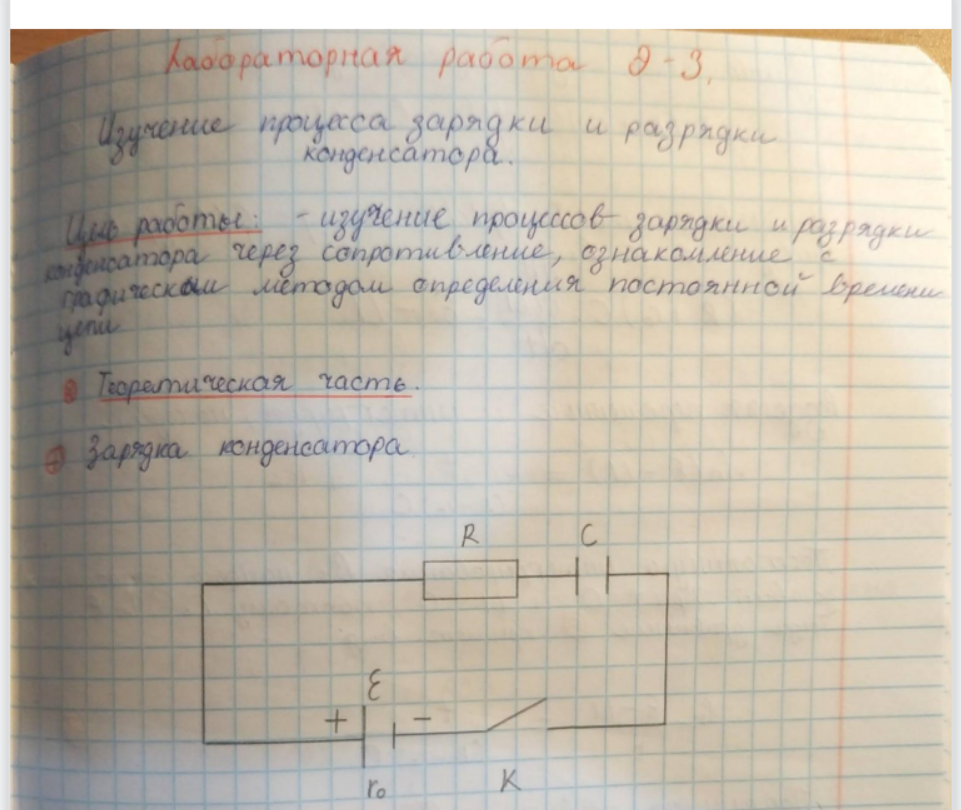 Лабораторная работа Э-3.
Изучение процесса зарядки и разрядки
конденсатора.
Цель работы: - изучение процессов зарядки и разрядки
конденсатора через сопротивление, ознакомление с
графическим методом определения постоянной времени
цепи
Теоретическая часть.
Зарядка конденсатора
R C
ε
+ -
r₀ K